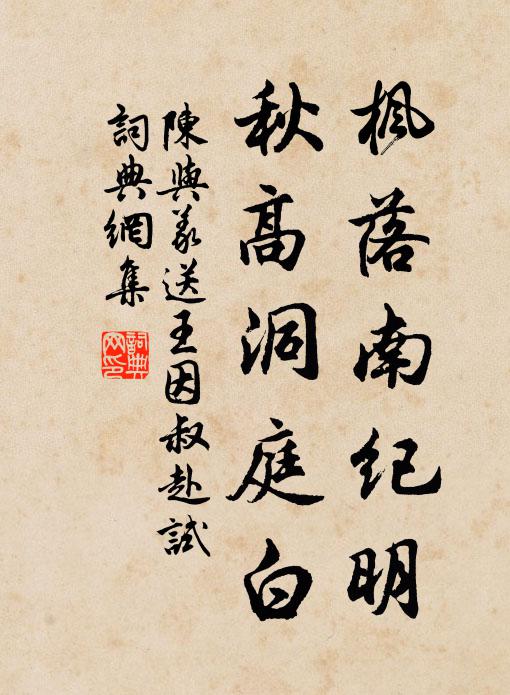 枫落南纪明
秋高洞庭白
陳與義送王因叔赴試
詞典網集
詞典网印